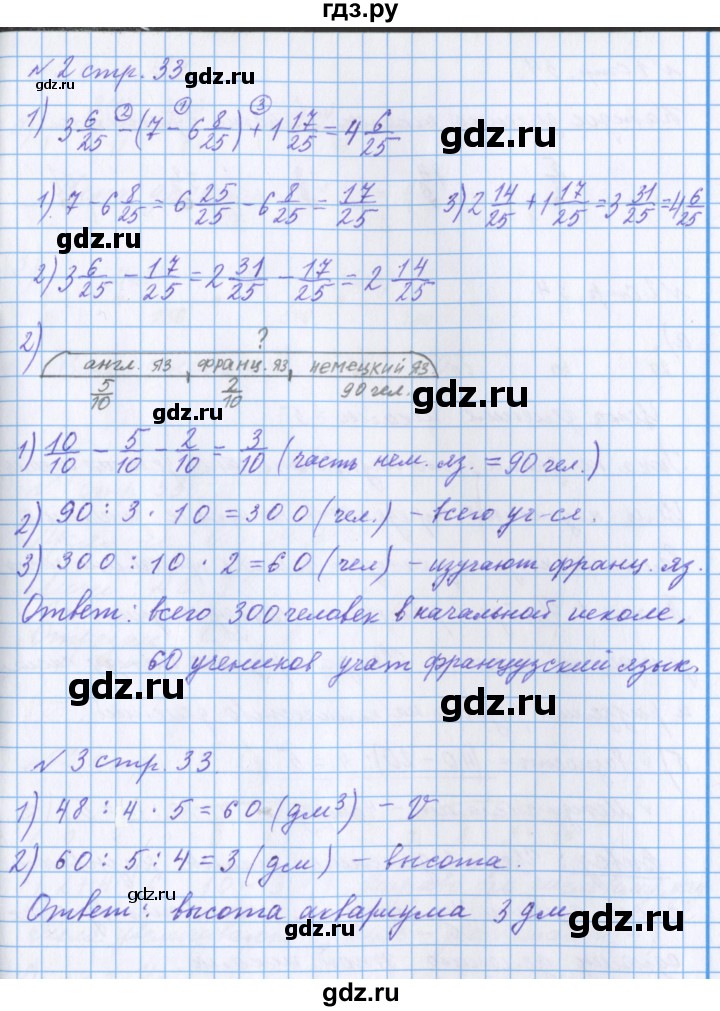 гдз.ру
№2 стр. 33
gdz.ru
1) 3 6/25 - (7 - 6 8/25) + 1 17/25 = 4 6/25
2 1 3
gdz.ru
gdz.ru
1) 7 - 6 8/25 = 6 25/25 - 6 8/25 = 17/25
3) 2 14/25 + 1 17/25 = 3 31/25 = 4 6/25
gdz.ru
2) 3 6/25 - 17/25 = 2 31/25 - 17/25 = 2 14/25
2) ?
англ. яз франц. яз немецкий яз
5/10 2/10 90 чел.
gdz.ru
gdz.ru
1) 10/10 - 5/10 - 2/10 = 3/10 (часть нем. яз. = 90 чел.)
2) 90 : 3 · 10 = 300 (чел.) - всего уч-ся.
gdz.ru
gdz.ru
3) 300 : 10 · 2 = 60 (чел) - изучают франц. яз.
Ответ: всего 300 человек в начальной школе,
60 учеников учат французский язык.
gdz.ru
gdz.ru
№3 стр. 33.
1) 48 : 4 · 5 = 60 (дм³) - V
gdz.ru
gdz.ru
2) 60 : 5 : 4 = 3 (дм) - высота.
gdz.ru
Ответ: высота аквариума 3 дм
gdz.ru
gdz.ru
gdz.ru